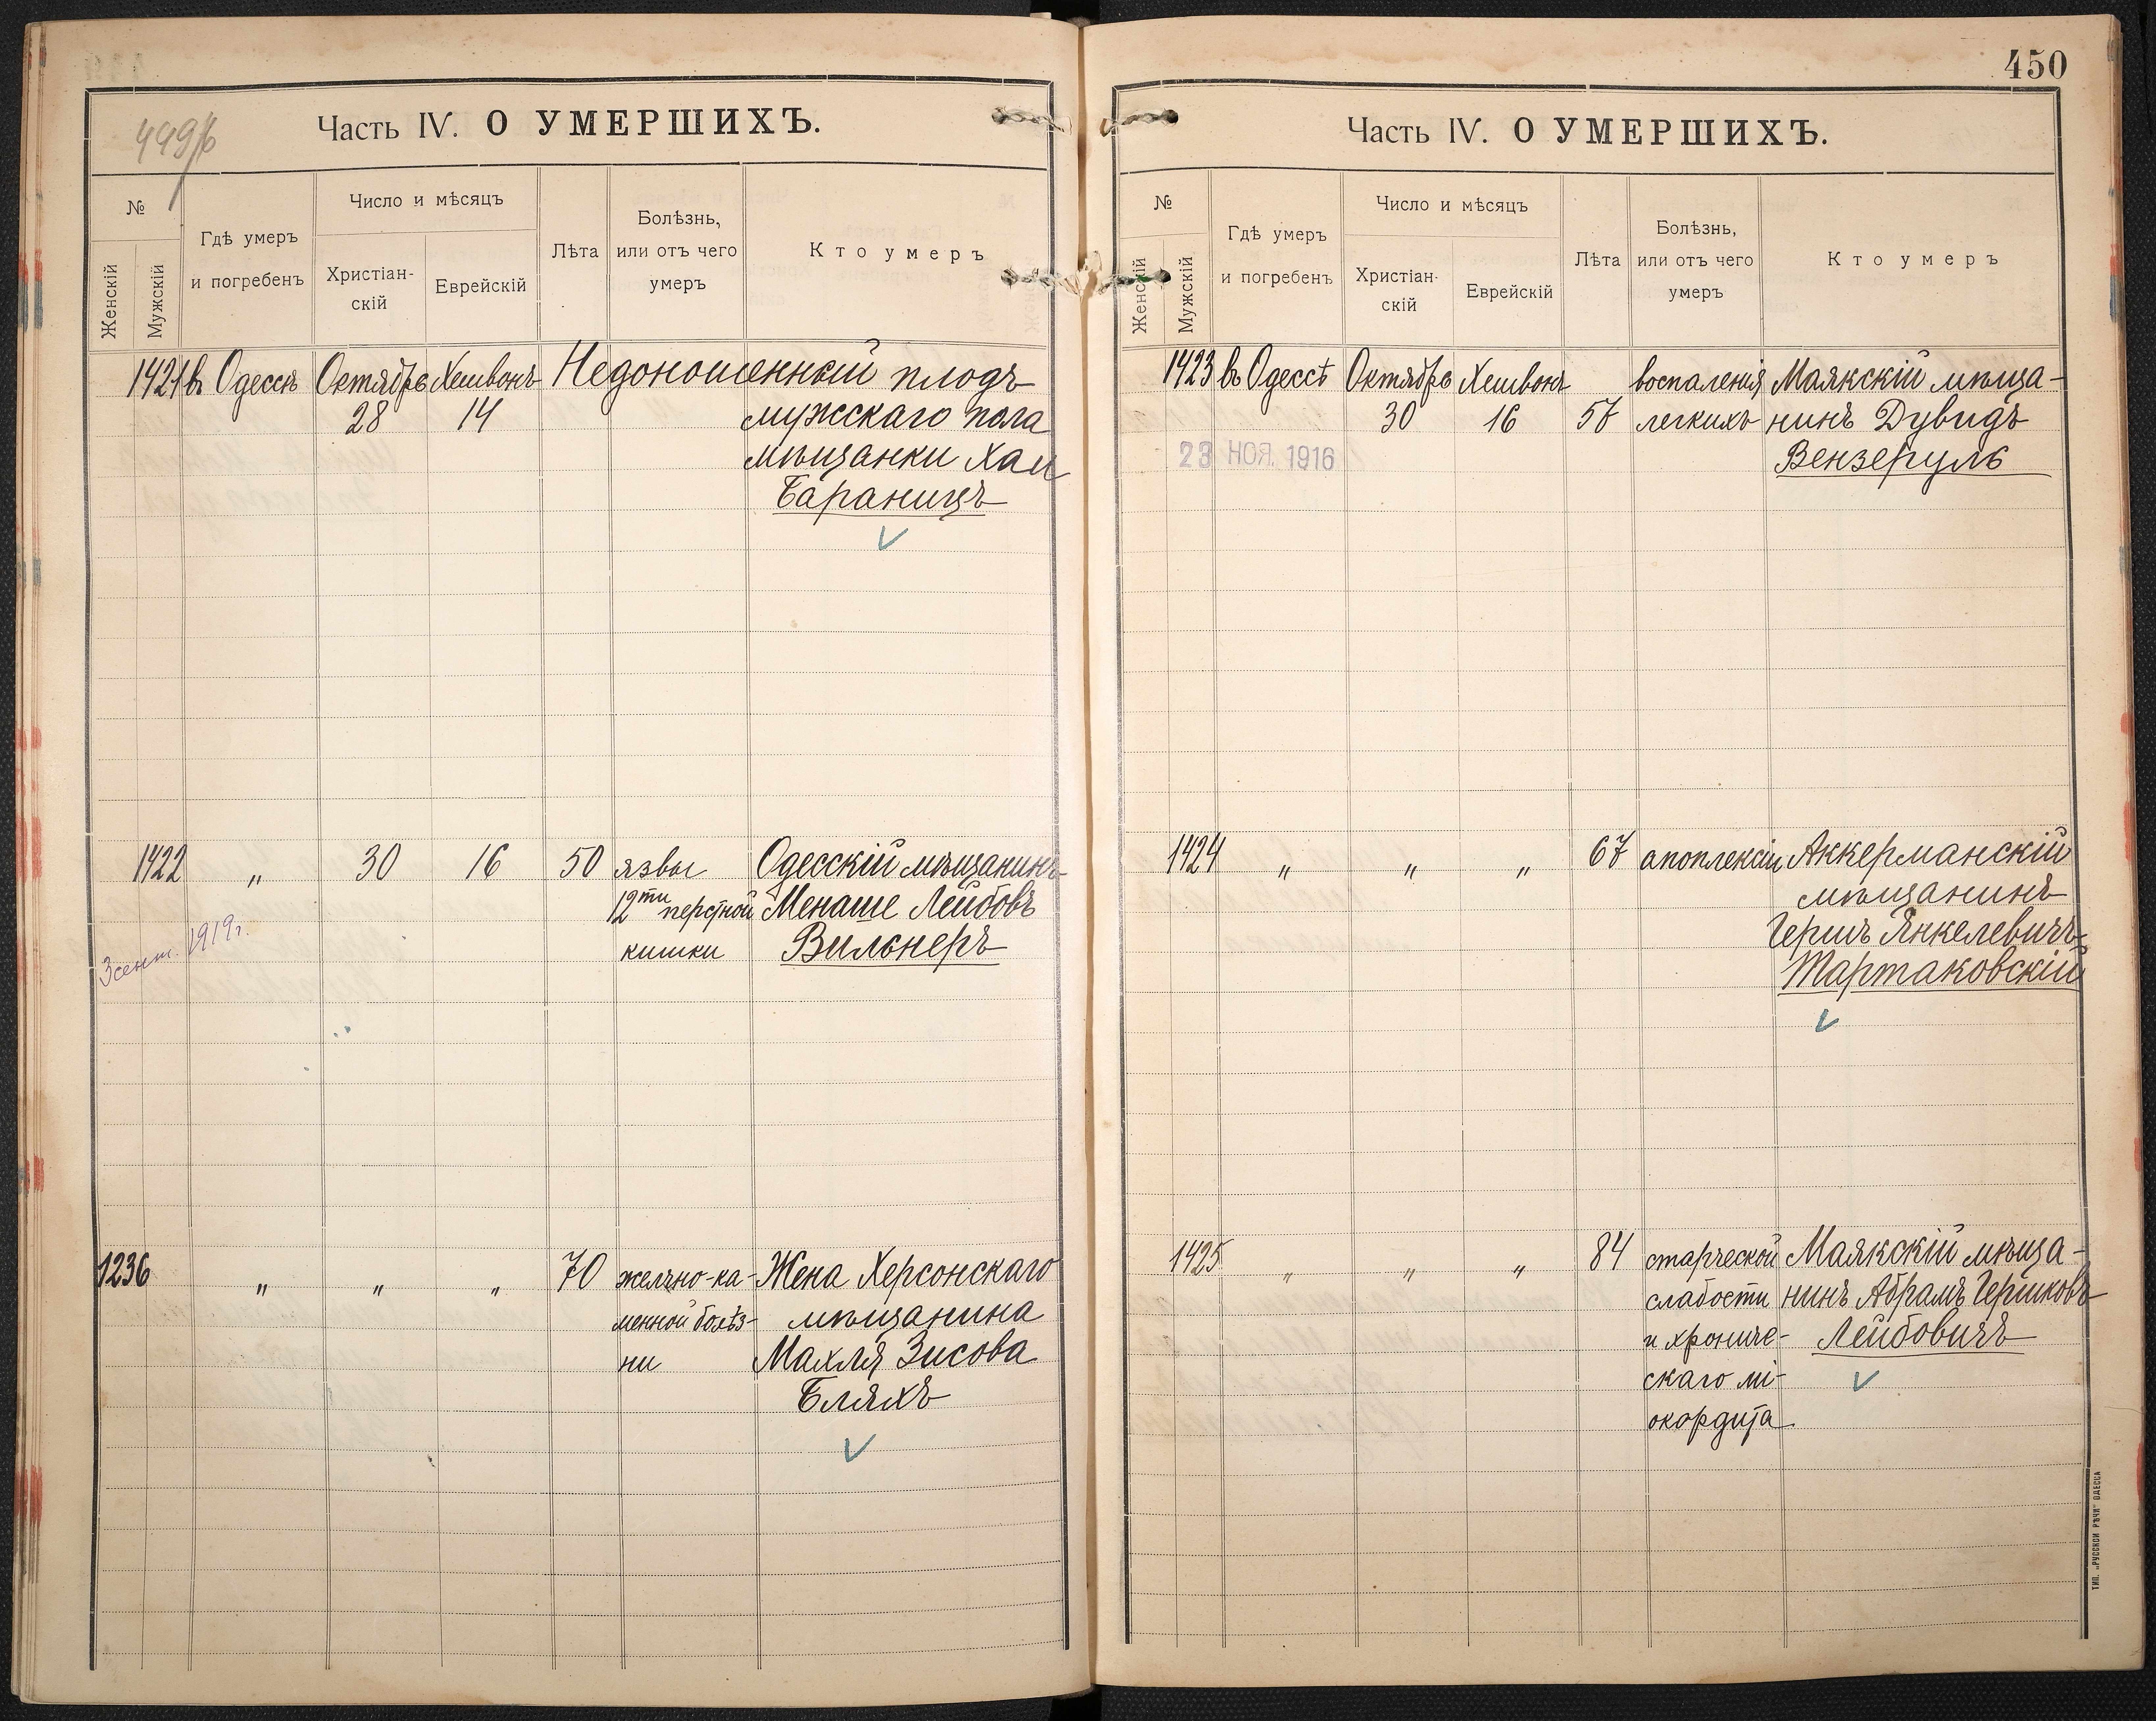 449/б
Часть IV. О УМЕРШИХЪ.
№
Женскій
Мужскій
Гдѣ умеръ
и погребенъ
Число и мѣсяцъ
Христіан-
скій
Еврейскій
Лѣта
Болѣзнь,
или отъ чего
умеръ
Кто умеръ
1421 въ Одессѣ Октябрь Хешвонъ Недоношенный плодъ
28 14 мужскаго пола
мѣщанки Хаи
Бараницъ
1422 „ 30 16 50 язвы Одесскій мѣщанинъ
12ти перстной Менаше Лейбовъ
кишки Вильнеръ
3 сент. 1919 г.
1236 „ „ „ 70 желчно-ка- Жена Херсонскаго
менной болѣз- мѣщанина
ни Махля Зисова
Бляхъ
450
Часть IV. О УМЕРШИХЪ.
№
Женскій
Мужскій
Гдѣ умеръ
и погребенъ
Число и мѣсяцъ
Христіан-
скій
Еврейскій
Лѣта
Болѣзнь,
или отъ чего
умеръ
Кто умеръ
1423 въ Одессѣ Октябрь Хешвонъ воспаленія Маякскій мѣща-
30 16 57 легкихъ нинъ Дувидъ
23 НОЯ. 1916 Вензеруль
1424 „ „ „ 67 апоплексіи Аккерманскій
мѣщанинъ
Гершъ Янкелевичъ
Тартаковскій
1425 „ „ „ 84 старческой Маякскій мѣща-
слабости нинъ Абрамъ Гершковъ
и хрониче- Лейбовичъ
скаго мі-
окордита
ТИП. „РУССКОЙ РѢЧИ“ ОДЕССА